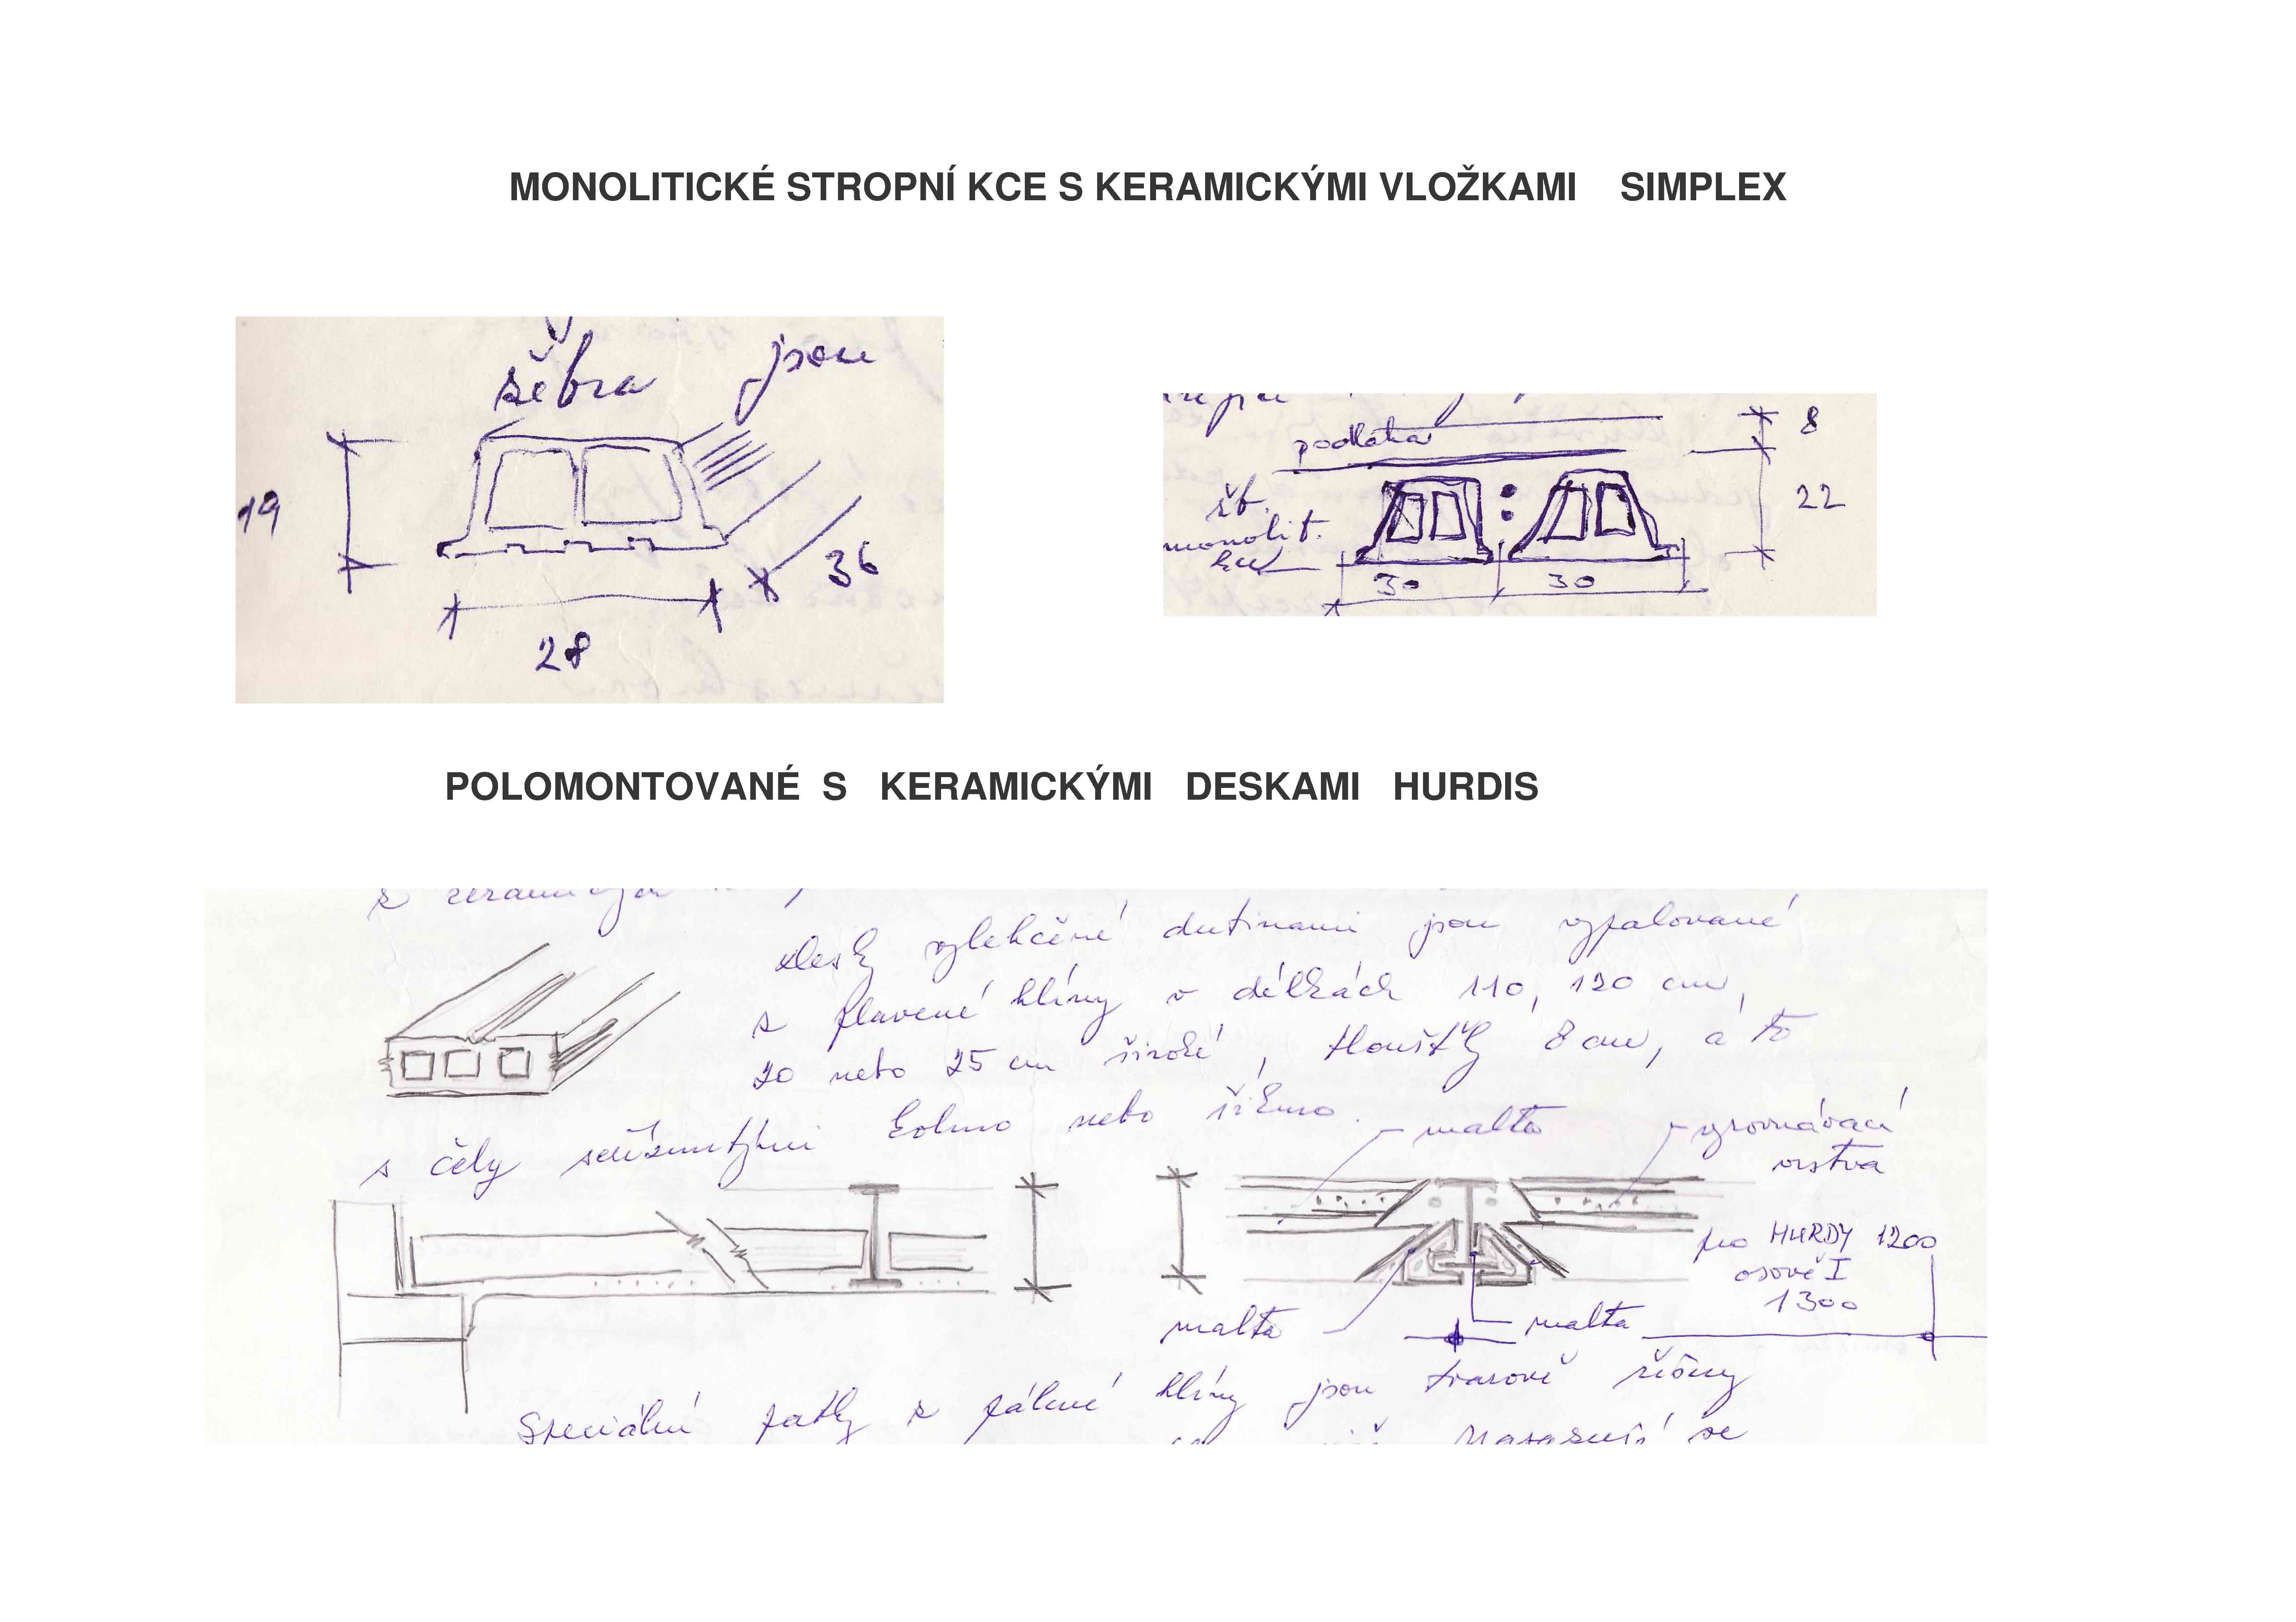 MONOLITICKÉ STROPNÍ KCE S KERAMICKÝMI VLOŽKAMI SIMPLEX
žebra jsou
19
36
28
podlaha
8
žb.
22
monolit.
30 30
POLOMONTOVANÉ S KERAMICKÝMI DESKAMI HURDIS
desky vylehčené dutinami jsou vypalované
z plavené hlíny v délkách 110, 120 cm,
20 nebo 25 cm široké, tloušťky 8 cm, a to
s čely seříznutými kolmo nebo šikmo.
malta
vyrovnávací
vrstva
pro HURDY 1200
osově I
1300
malta
malta
Speciální patky z pálené hlíny jsou tvarově různy